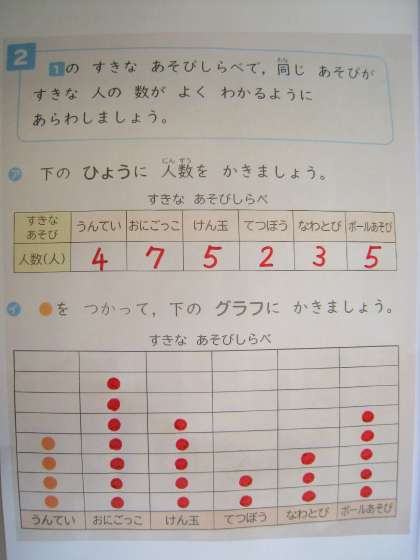 2
1の すきな あそびしらべで, 同じ あそびが
おな
すきな 人の 数が よく わかるように
あらわしましょう。
ア 下の ひょうに 人数を かきましょう。
にん ずう
すきな あそびしらべ
すきな あそび うんてい おにごっこ けん玉 てつぼう なわとび ボールあそび
人数(人) 4 7 5 2 3 5
イ ●を つかって, 下の グラフに かきましょう。
すきな あそびしらべ
うんてい おにごっこ けん玉 てつぼう なわとび ボールあそび